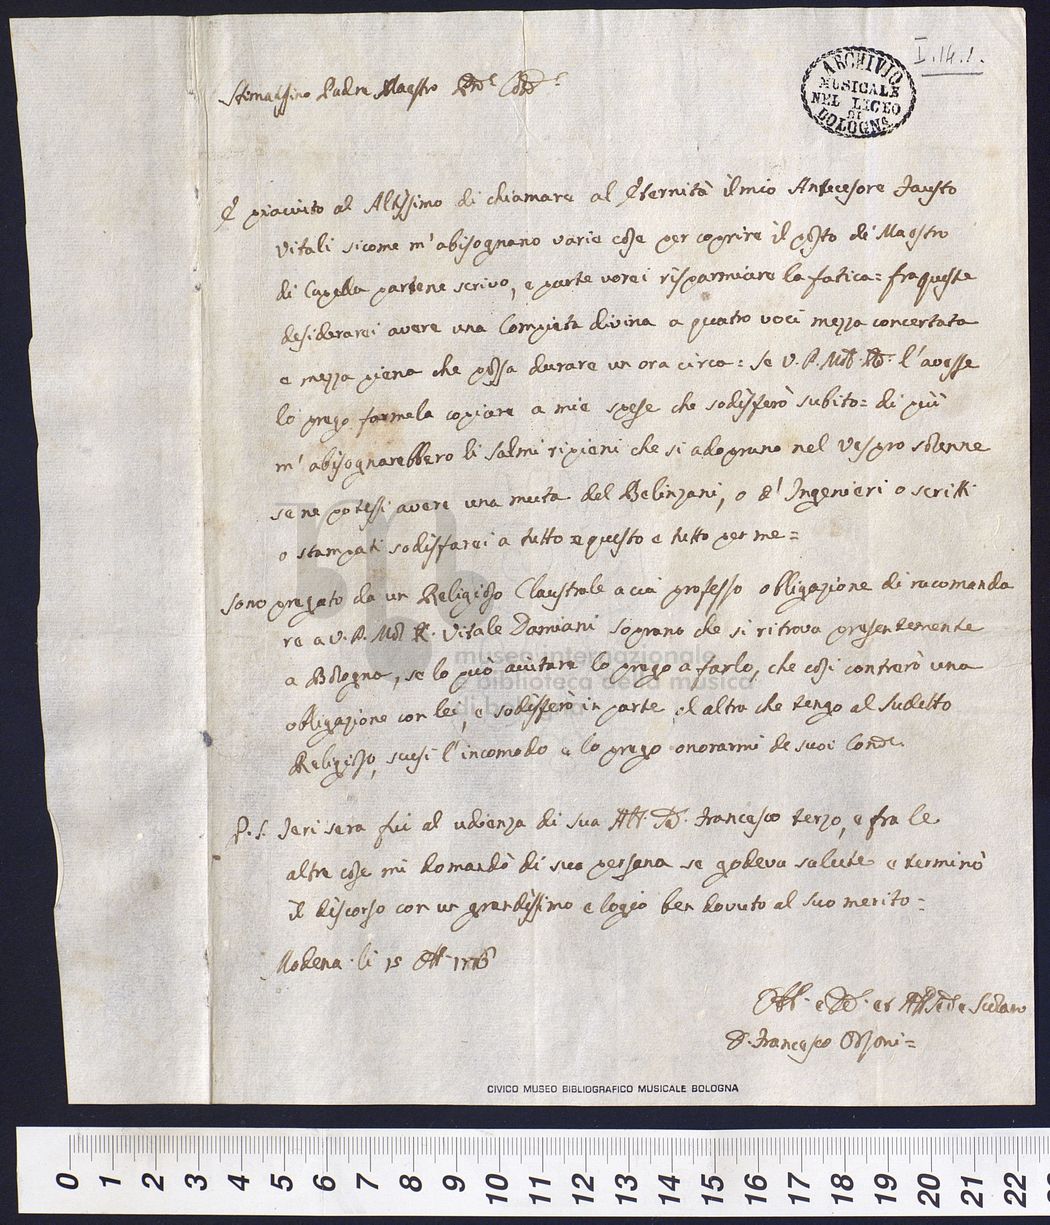 I.14.1.
ARCHIVIO
MUSICALE
NEL LICEO
DI
BOLOGNA
Stimatissimo Padre Maestro
È piaciuto al Altissimo di chiamare al Eternità il mio Antecesore Fausto
Vitali sicome m'abisognano varie cose per coprire il posto di Maestro
di Capella parte ne scrivo, e parte vorei risparmiare la fatica= fra queste
desiderarei avere una Compieta divina a quatro voci mezza concertata
e mezza piena che possa durare un ora circa= se V. P. l'avesse
lo prego farmela copiare a mie spese che sodisferò subito= di più
m'abisognarebbero li salmi ripieni che si adoprano nel Vespro solenne
se ne potessi avere una muta del Belinzani, o d'Ingenieri o scritti
o stampati sodisfarei a tutto e questo e tutto per me=
Sono pregato da un Religioso Claustrale a cui professo obbligazione di racomanda
re a V. P. Vitale Damiani soprano che si ritrova presentemente
a Bologna, se lo può aiutare lo prego a farlo, che così contrarò una
obligazione con lei, e sodisferò in parte el altra che tengo al sudetto
Religioso, scusi l'incomodo e lo prego onorarmi de suoi
P. S. Ieri sera fui al udienza di sua Alt. Francesco terzo, e fra le
altre cose mi domandò di sua persona se godeva salute e terminò
il discorso con un grandissimo elogio ben dovuto al suo merito=
Modena li 15 1776
D. Francesco Orsoni=
museo internazionale
e biblioteca della musica
di bologna
CIVICO MUSEO BIBLIOGRAFICO MUSICALE BOLOGNA
0 1 2 3 4 5 6 7 8 9 10 11 12 13 14 15 16 17 18 19 20 21 22